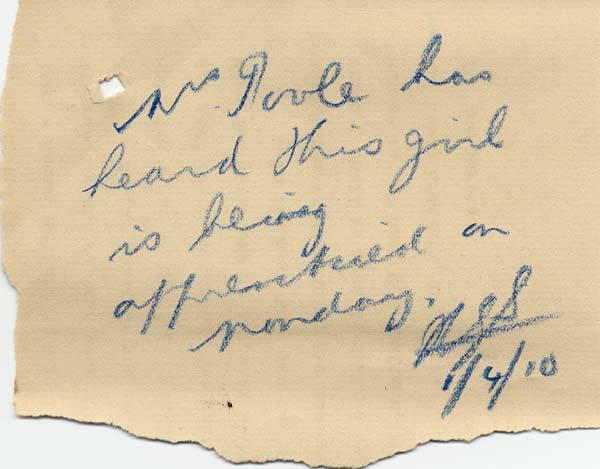 Mrs. Poole has
heard this girl
is being
apprenticed on
Monday.
1/4/10